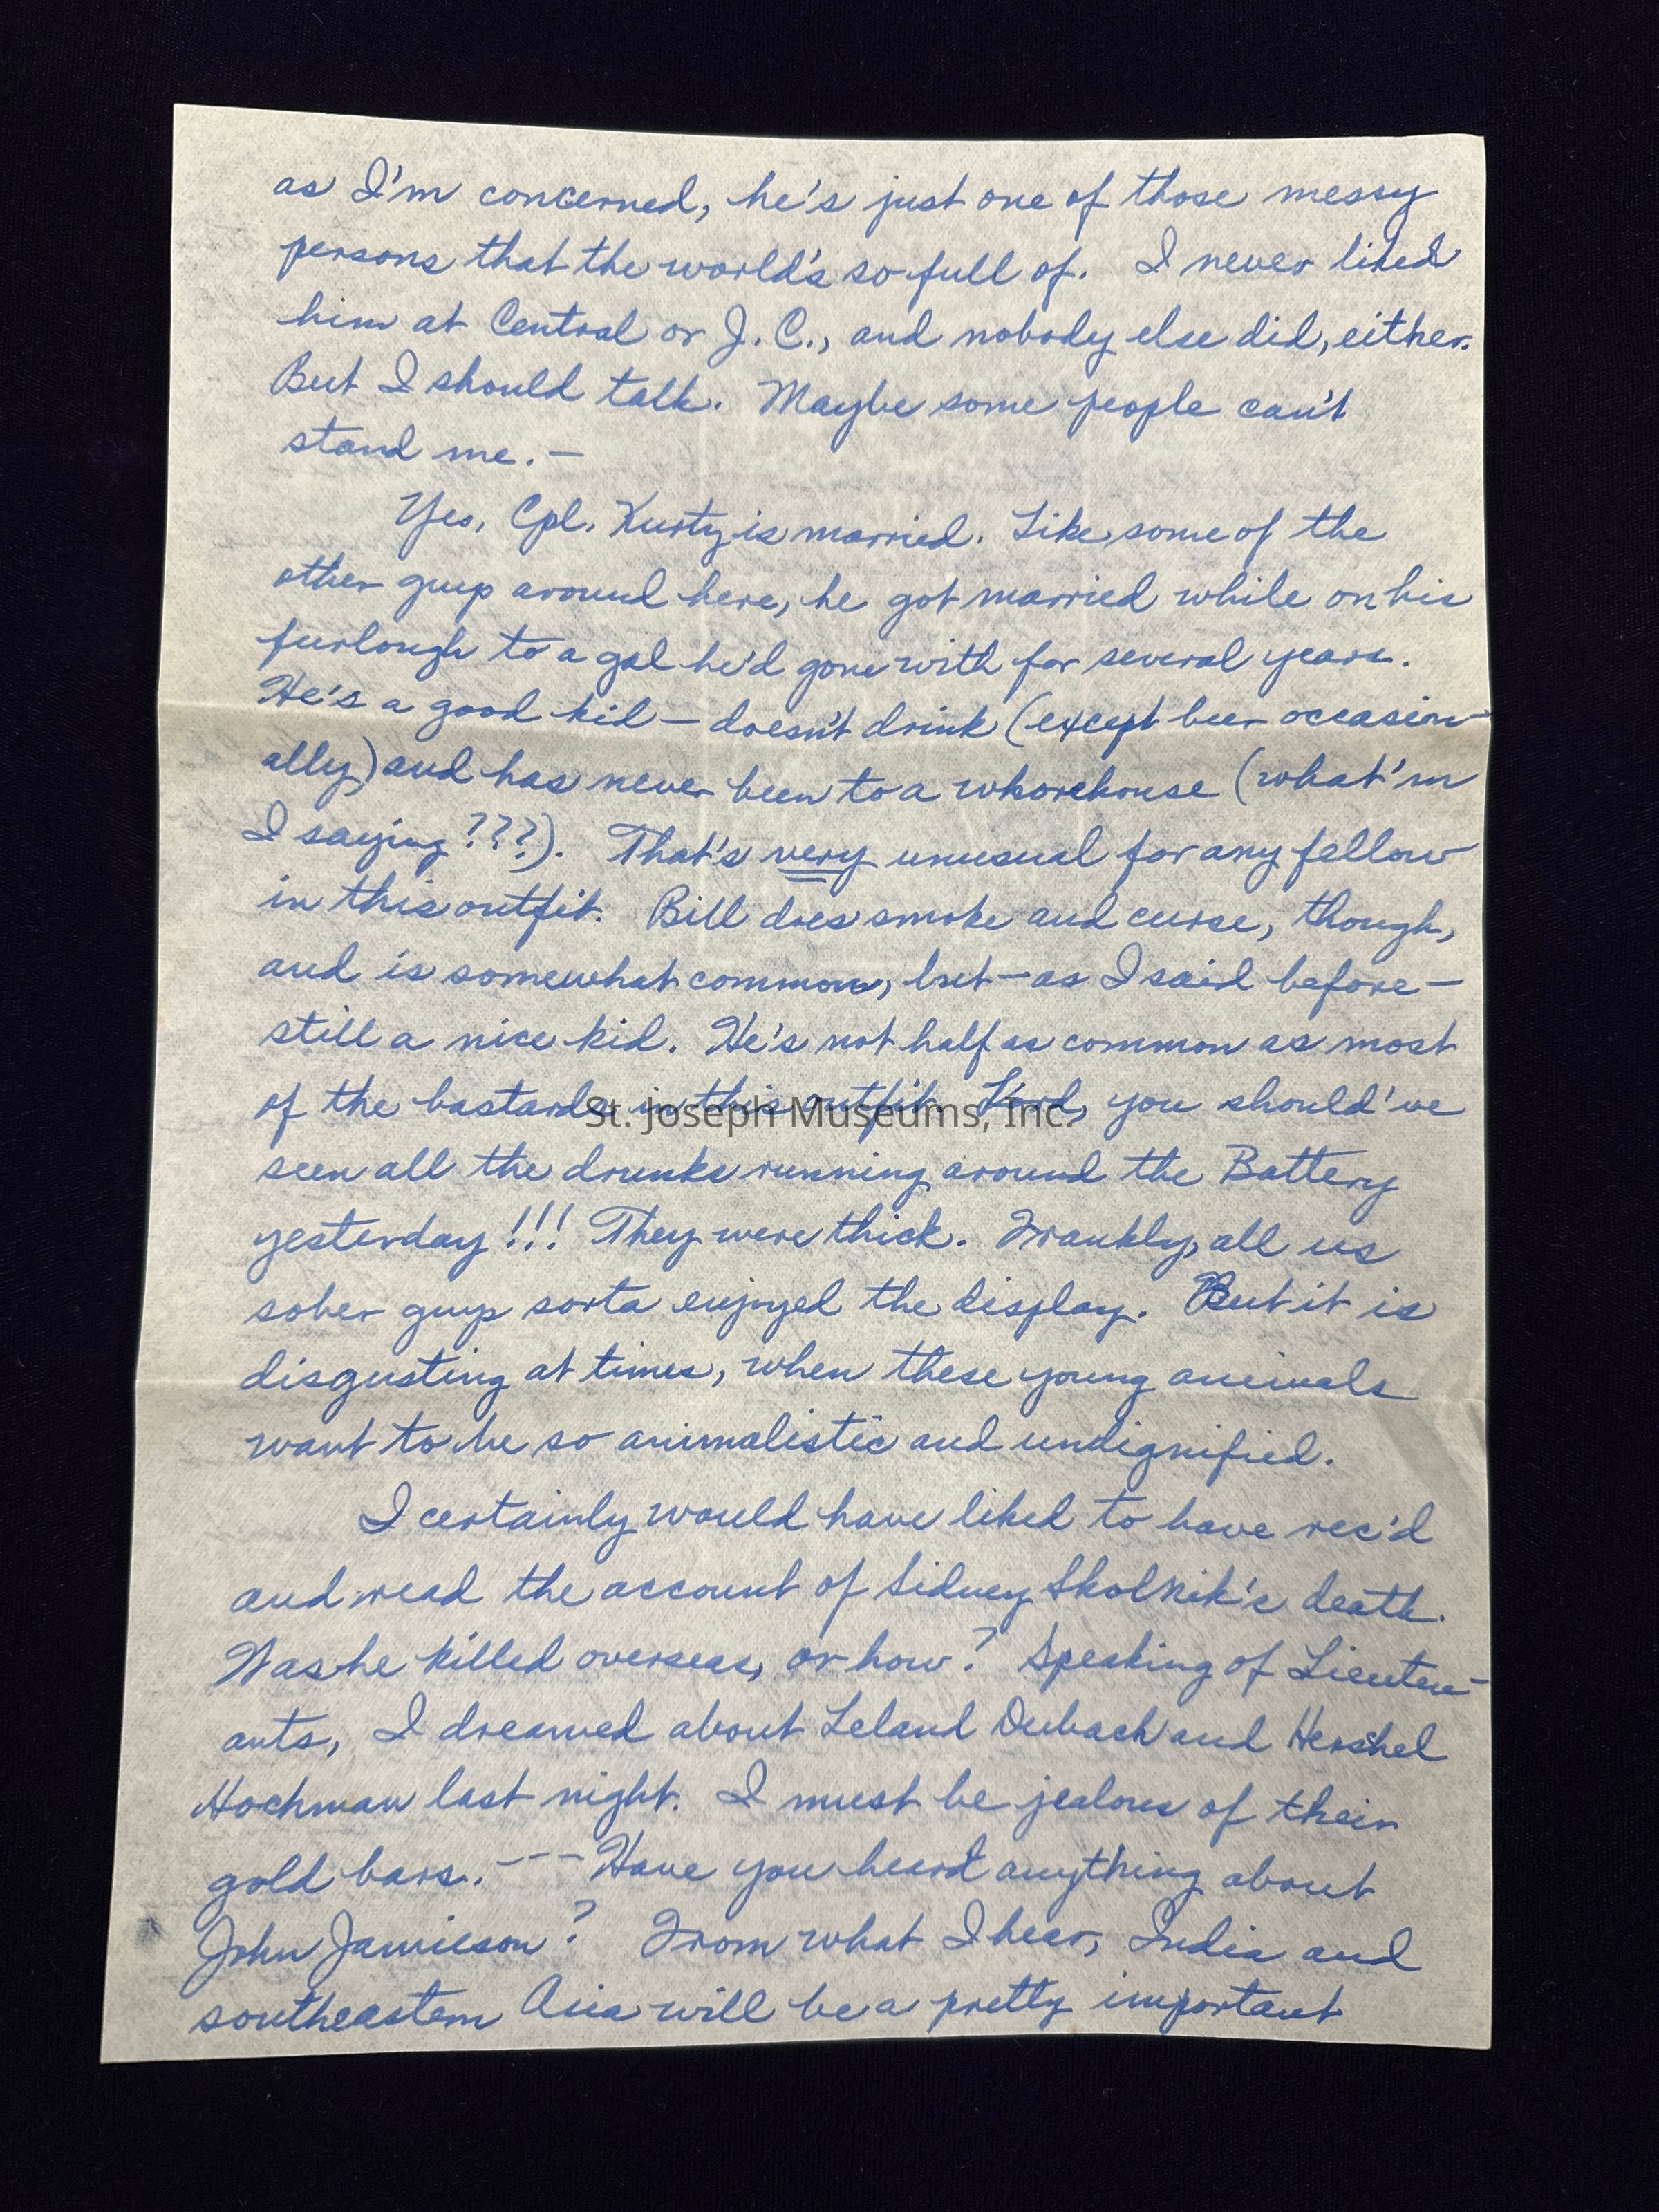 as I'm concerned, he's just one of those messy
persons that the world's so full of. I never liked
him at Central or J. C., and nobody else did, either.
But I should talk. Maybe some people can't
stand me. —
Yes, Cpl. Kurtz is married. Like some of the
other guys around here, he got married while on his
furlough to a gal he'd gone with for several years.
He's a good kid — doesn't drink (except beer occasion-
ally) and has never been to a whorehouse (what'm
I saying???). That's very unusual for any fellow
in this outfit. Bill does smoke and curse, though,
and is somewhat common, but — as I said before —
still a nice kid. He's not half as common as most
of the bastards in this outfit. Lord, you should've
St. Joseph Museums, Inc.
seen all the drunks running around the Battery
yesterday!!! They were thick. Frankly, all us
sober guys sorta enjoyed the display. But it is
disgusting at times, when these young animals
want to be so animalistic and undignified.
I certainly would have liked to have rec'd
and read the account of Sidney Skolnik's death.
Was he killed overseas, or how? Speaking of Lieuten-
ants, I dreamed about Leland Dubach and Hershel
Hochman last night. I must be jealous of their
gold bars. - - - Have you heard anything about
John Jamieson? From what I hear, India and
southeastern Asia will be a pretty important